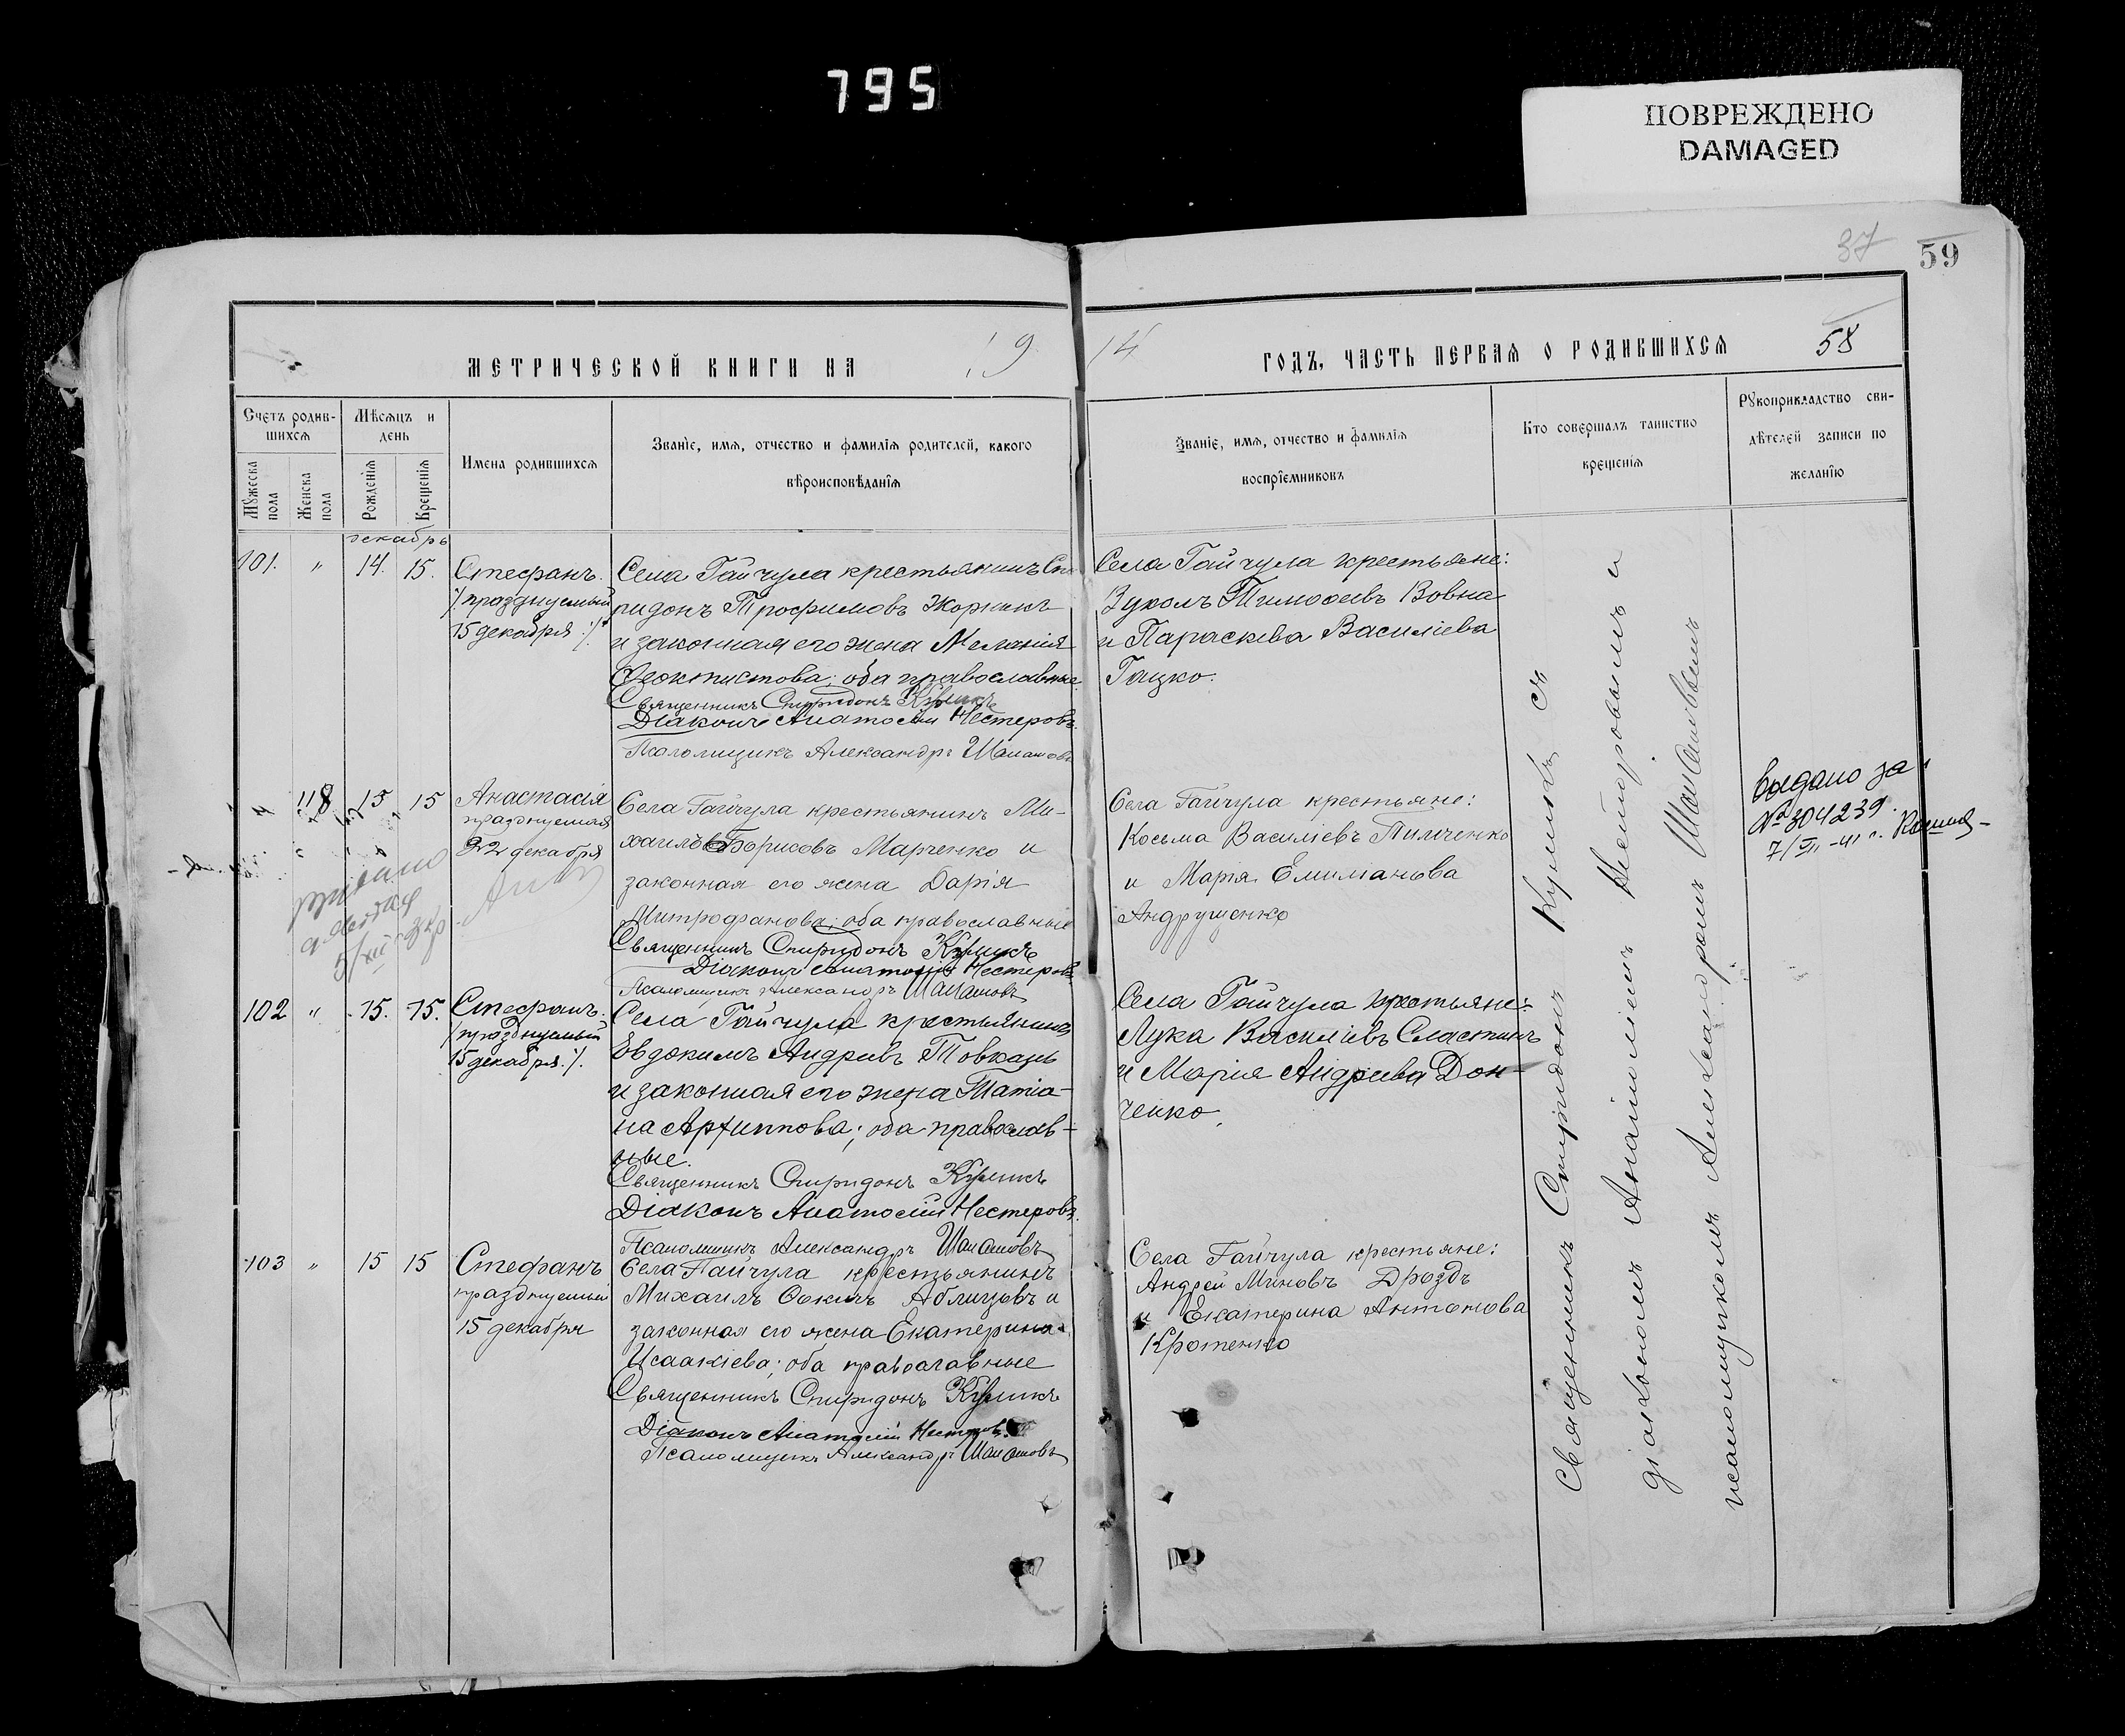 795
ПОВРЕЖДЕНО
DAMAGED
37
59
МЕТРИЧЕСКОЙ КНИГИ НА 19
14 ГОДЪ, ЧАСТЬ ПЕРВАЯ О РОДИВШИХСЯ
58
Счетъ родив-
шихся
Мужеска
пола
Женска
пола
Мѣсяцъ и
день
Рожденія
Крещенія
Имена родившихся
Званіе, имя, отчество и фамилія родителей, какого
вѣроисповѣданія
Званіе, имя, отчество и фамилія
воспріемниковъ
Кто совершалъ таинство
крещенія
Рукоприкладство сви-
дѣтелей записи по
желанію
декабрь
101. " 14. 15. Стефанъ.
/:празднуемый
15 декабря:/.
Села Гайчула крестьянинъ Спи
ридонъ Трофимовъ Жорникъ
и законная его жена Меланія
Феоктистова; оба православные.
Священникъ Спиридонъ Куликъ
Діаконъ Анатолій Нестеровъ.
Псаломщикъ Александръ
Села Гайчула крестьяне:
Зуколъ Тимофеевъ Вовна
и Параскева Василіева
Гацко.
118 15 15 Анастасія
празднуемая
22 декабря
Села Гайчула крестьянинъ Ми-
хаилъ Борисовъ Марченко и
законная его жена Дарія
Митрофанова; оба православные
Священникъ Спиридонъ Куликъ
Діаконъ Анатолій Нестеровъ
Псаломщикъ Александръ
Села Гайчула крестьяне:
Косьма Василіевъ Пилипченко
и Марія Емиліанова
Андрущенко
выдано за
№ 304239.
7/VII-41 г.
102 " 15. 15. Стефанъ.
/:празднуемый
15 декабря:/.
Села Гайчула крестьянинъ
Евдокимъ Андреевъ Товкачь
и законная его жена Татіа-
на Архиппова; оба православ-
ные.
Священникъ Спиридонъ Куликъ
Діаконъ Анатолій Нестеровъ.
Псаломщикъ Александръ
Села Гайчула крестьяне:
Лука Василіевъ Сластинъ
и Марія Андреева Дон-
ченко.
103 " 15 15 Стефанъ
празднуемый
15 декабря
Села Гайчула крестьянинъ
Михаилъ Аблицовъ и
законная его жена Екатерина
Исаакіева; оба православные
Священникъ Спиридонъ Куликъ
Діаконъ Анатолій Нестеровъ
Псаломщикъ Александръ
Села Гайчула крестьяне:
Андрей Миновъ Дроздъ
и Екатерина Антонова
Кротенко
Священникъ Спиридонъ Куликъ съ
діакономъ Анатоліемъ Нестеровымъ и
псаломщикомъ Александромъ